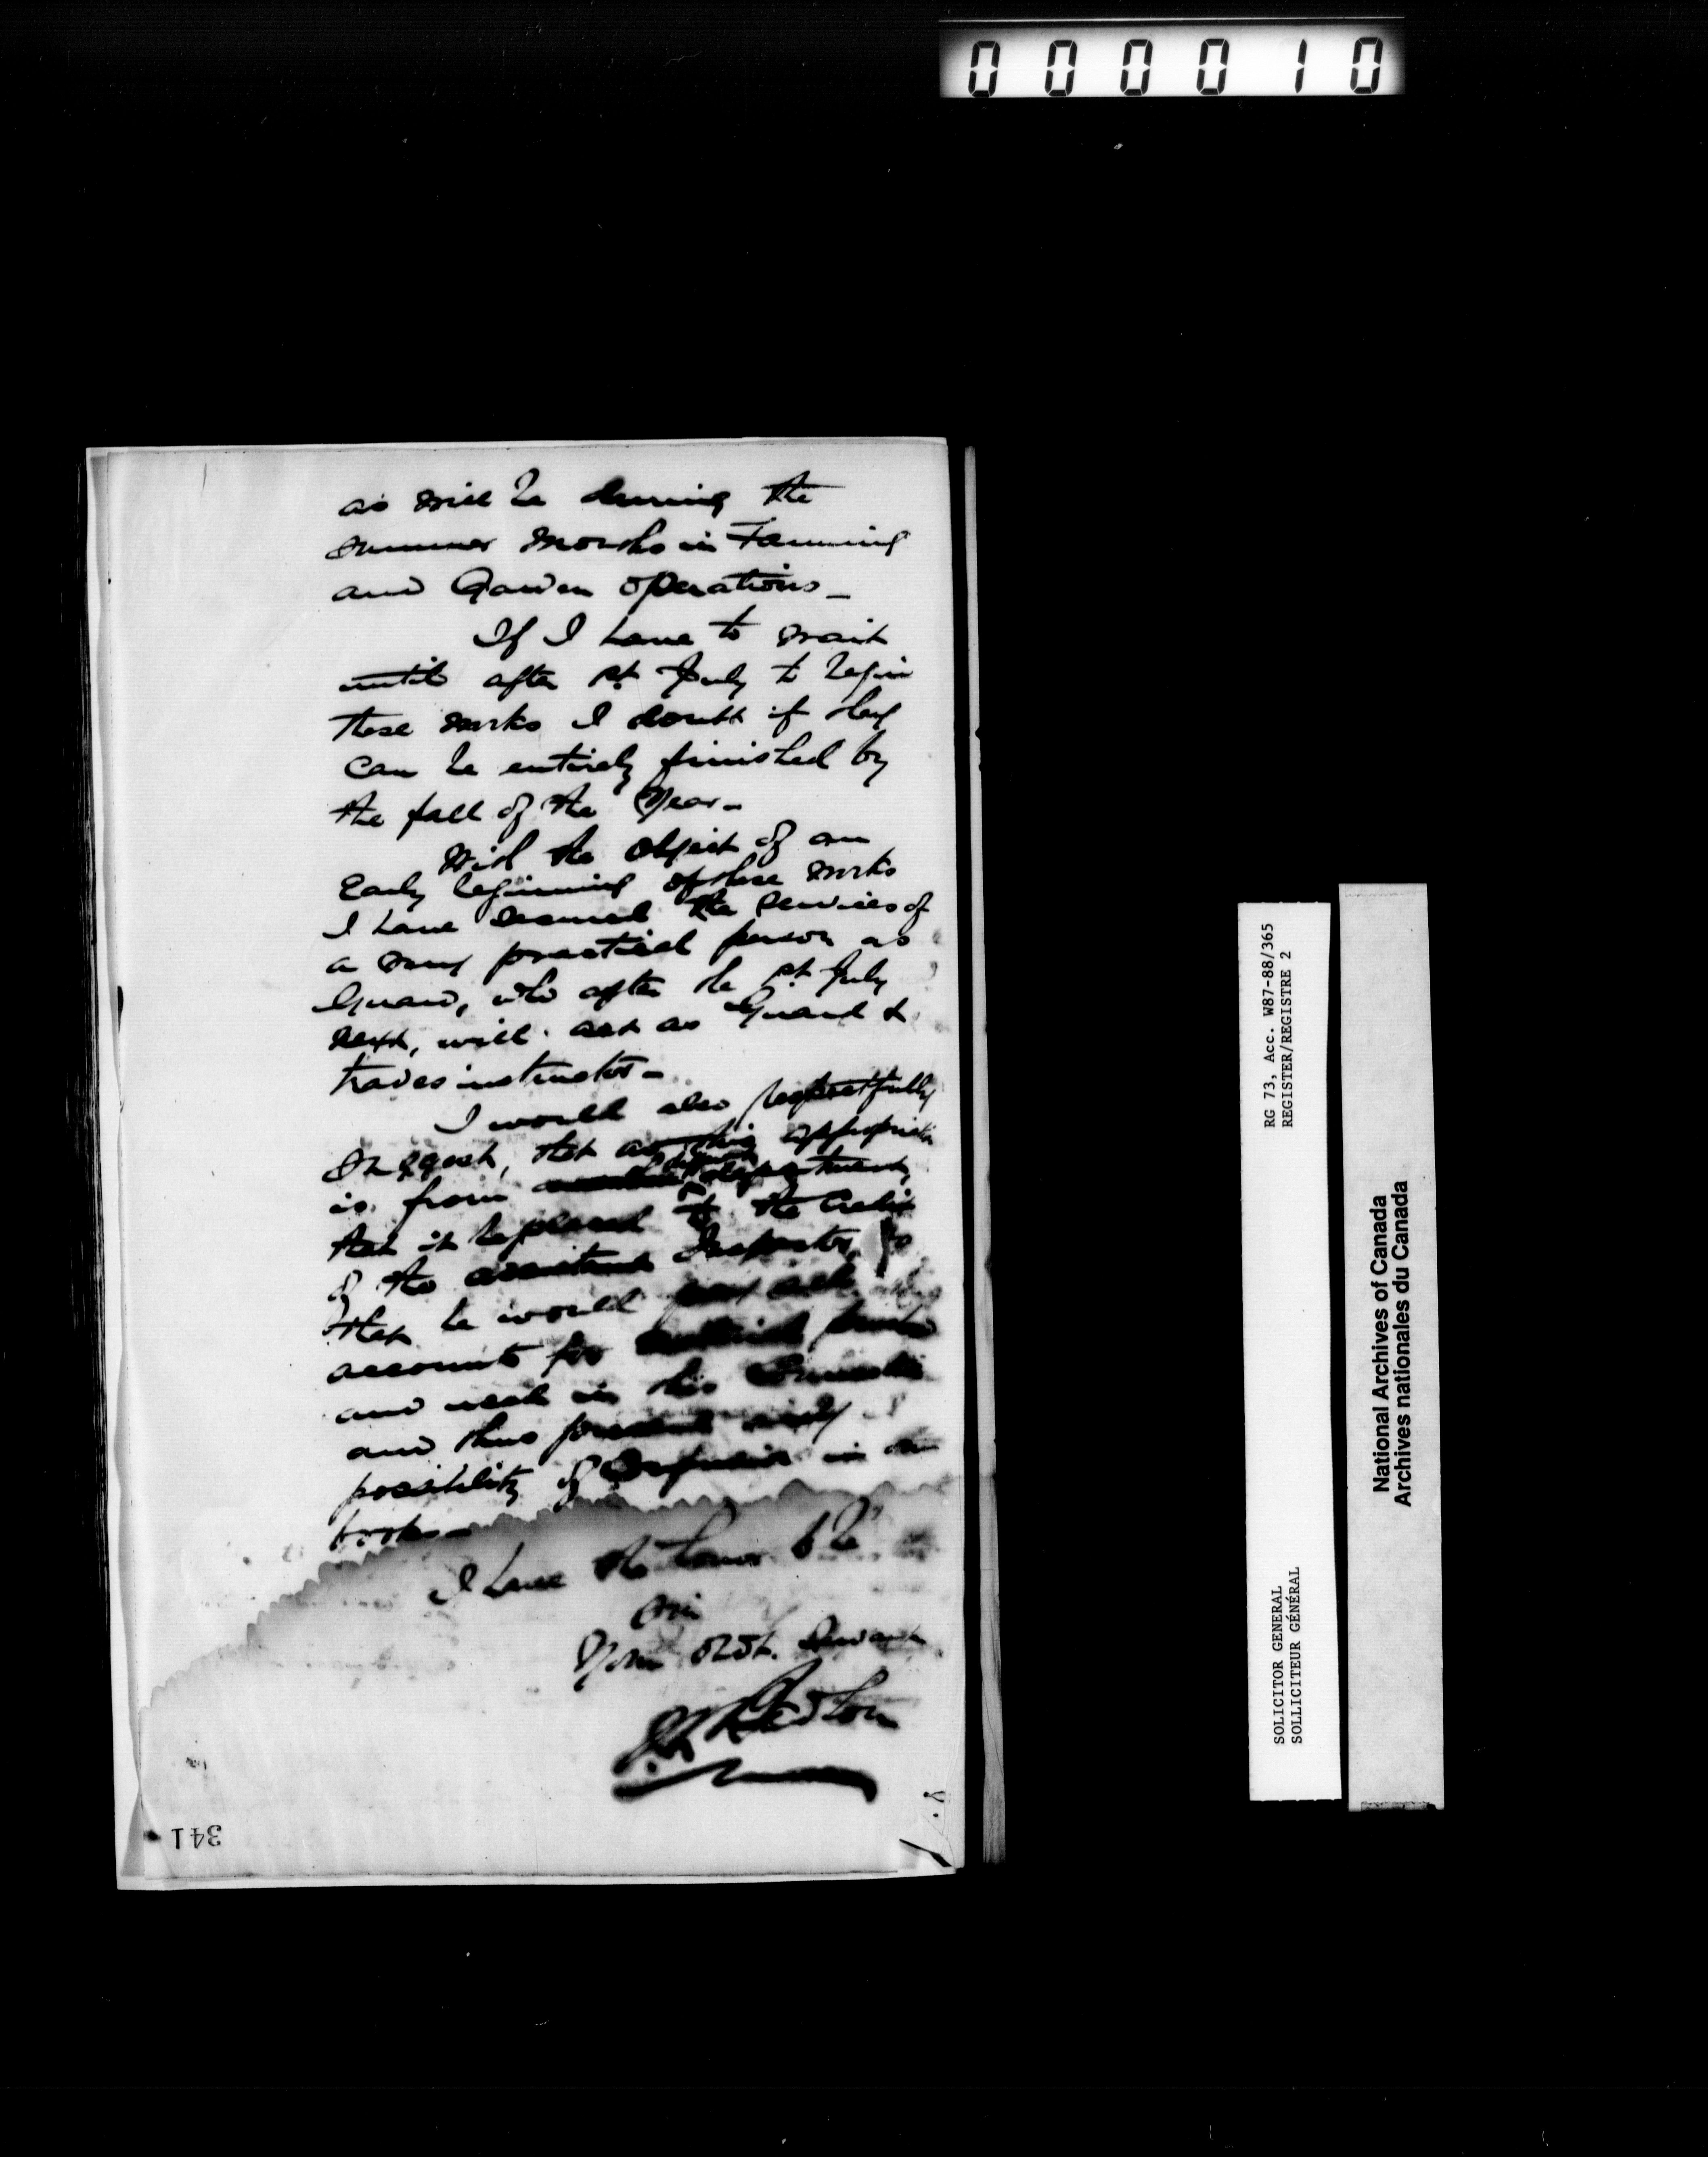 000010
as will be during the
summer months in Farming
and Garden operations_
If I have to wait
until after 1st July to begin
these works I doubt if they
can be entirely finished by
the fall of the year_
With the object of an
Early beginning of these works
I have secured the services of
a very practical person as
Guard, who after the 1st July
next, will act as Guard &
trades instructor_
I would also respectfully
suggest, that as this appropriation
is from department,
that it be placed to the credit
of the assistant Inspector, so
that he would
accounts for
and used in this
and thus prevent any
possibility of confusion in the
books_
I have the honor to be
Sir
Your obdt. Servant
341
RG 73, Acc. W87-88/365
REGISTER/REGISTRE 2
SOLICITOR GENERAL
SOLLICITEUR GÉNÉRAL
National Archives of Canada
Archives nationales du Canada